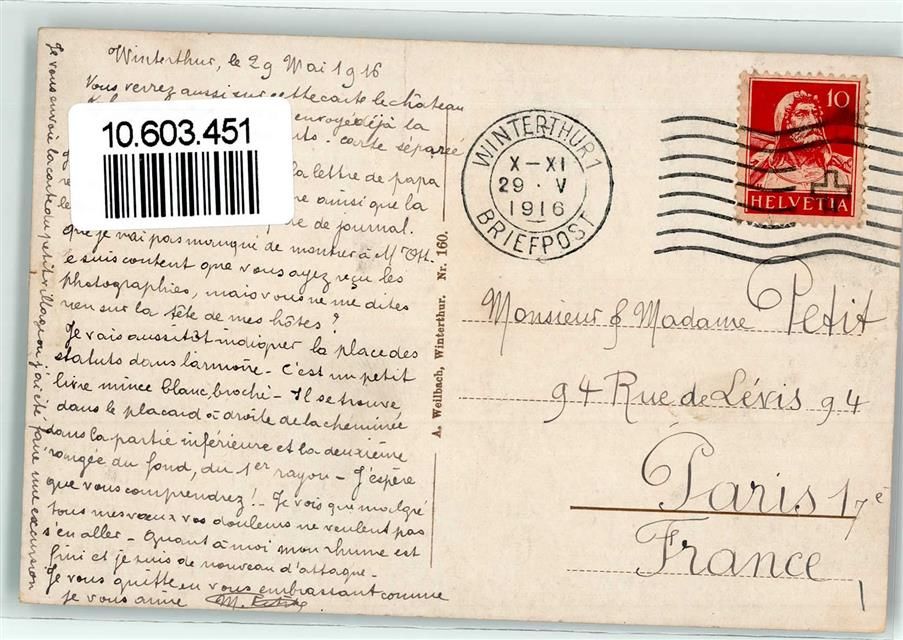 Winterthur, le 29 Mai 1916
Vous verrez aussi sur cette carte le château
envoyé déjà la
carte séparée
10.603.451
la lettre de papa
ainsi que la
de journal.
que je n'ai pas manqué de montrer à M Ott.
Je suis content que vous ayez reçu les
photographies, mais vous ne me dites
rien sur la tête de mes hôtes?
Je vais aussitôt indiquer la place des
statuts dans l'armoire - C'est un petit
livre mince blanc broché - Il se trouve
dans le placard à droite de la cheminée
dans la partie inférieure et la deuxième
rangée du fond, du 1er rayon - J'espère
que vous comprendrez! - Je vois que malgré
tous mes vœux vos douleurs ne veulent pas
s'en aller - Quant à moi mon rhume est
fini et je suis de nouveau d'attaque -
Je vous quitte en vous embrassant comme
je vous aime
Je vous envoie la carte du petit village où j'ai été faire une excursion
A. Weilbach, Winterthur. Nr. 160.
WINTERTHUR 1
X-XI
29 · V
1916
BRIEFPOST
10
HELVETIA
Monsieur & Madame Petit
94 Rue de Lévis 94
Paris 17e
France